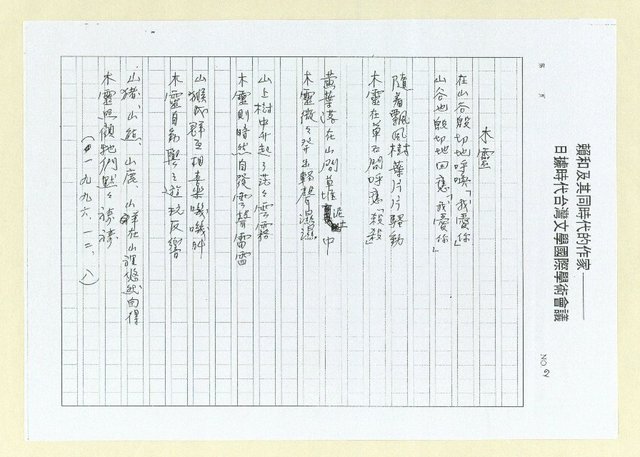 賴和及其同時代的作家——
日據時代台灣文學國際學術會議
NO 2
木靈
在山谷殷切地呼喚「我愛你」
山谷也殷切地回應「我愛你」
隨着飄風樹葉片片騷動
木靈在草石間呼應「殺殺」
黃葉落在山間草堆泥土中
木靈微々發出輕聲濕濕
山上樹中升起了茫々雲霧
木靈則暗然自發雲聲雷雷
山猴成群互相喜樂嘰嘰
木靈自為聲之遊玩反響
山豬、山熊、山鹿、山羊在山裡悠然自得
木靈照顧牠們點々滴滴
(一九九六、一二、八)